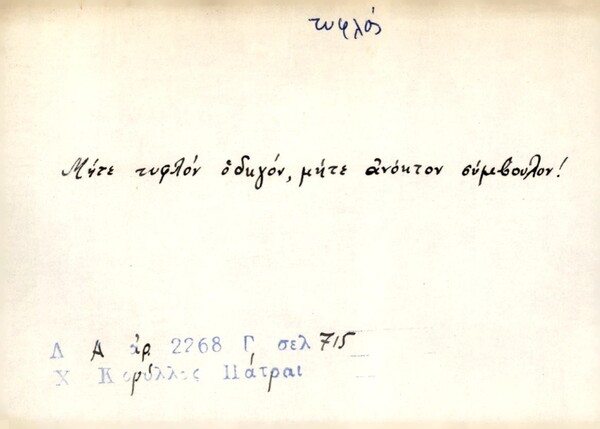 τυφλός
Μήτε τυφλόν ὁδηγόν, μήτε ἀνόητον σύμβουλον!
Λ Α ἀρ 2268 Γ σελ 715
Χ Κορύλλος Πάτραι